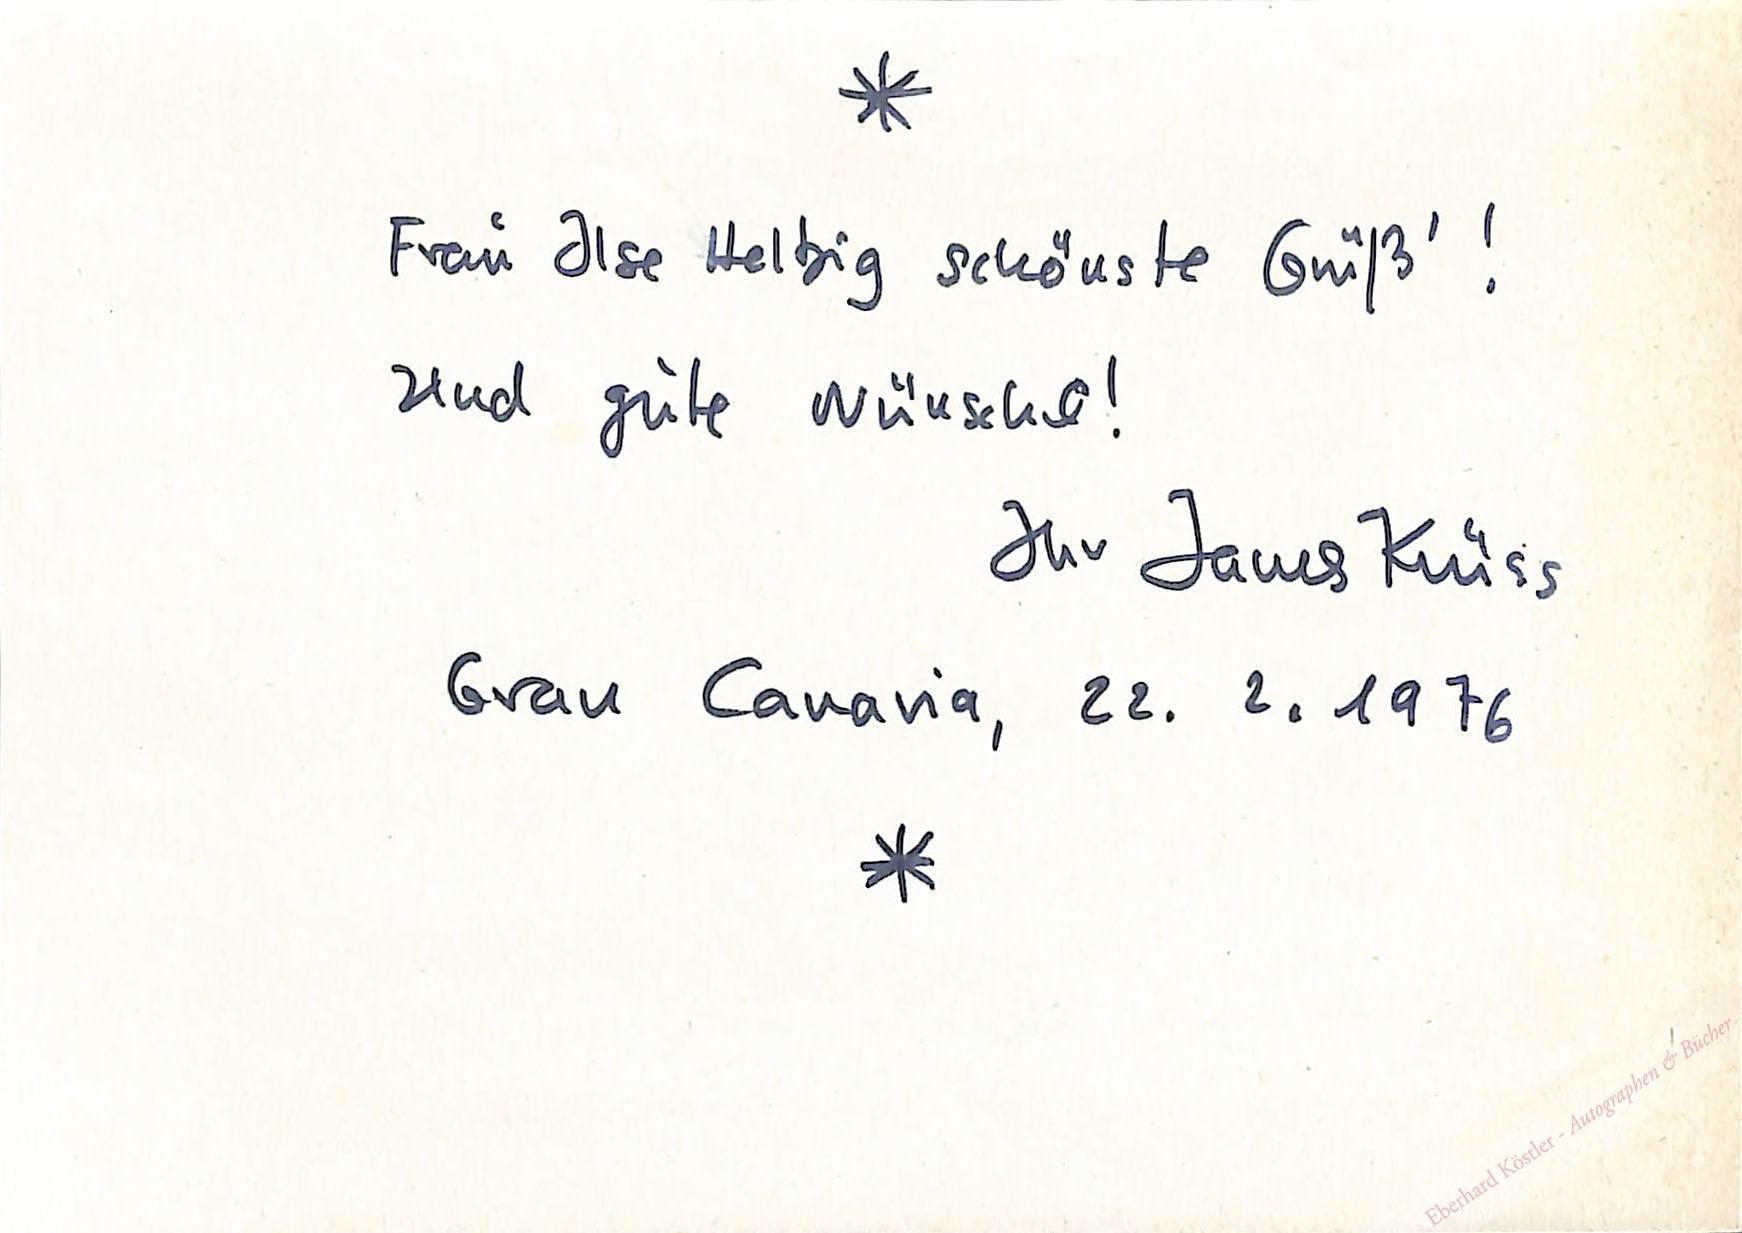 *
Frau Ilse Helbig schönste Grüß'!
Und gute Wünsche!
Ihr James Krüss
Gran Canaria, 22. 2. 1976
*
Eberhard Köstler - Autographen & Bücher